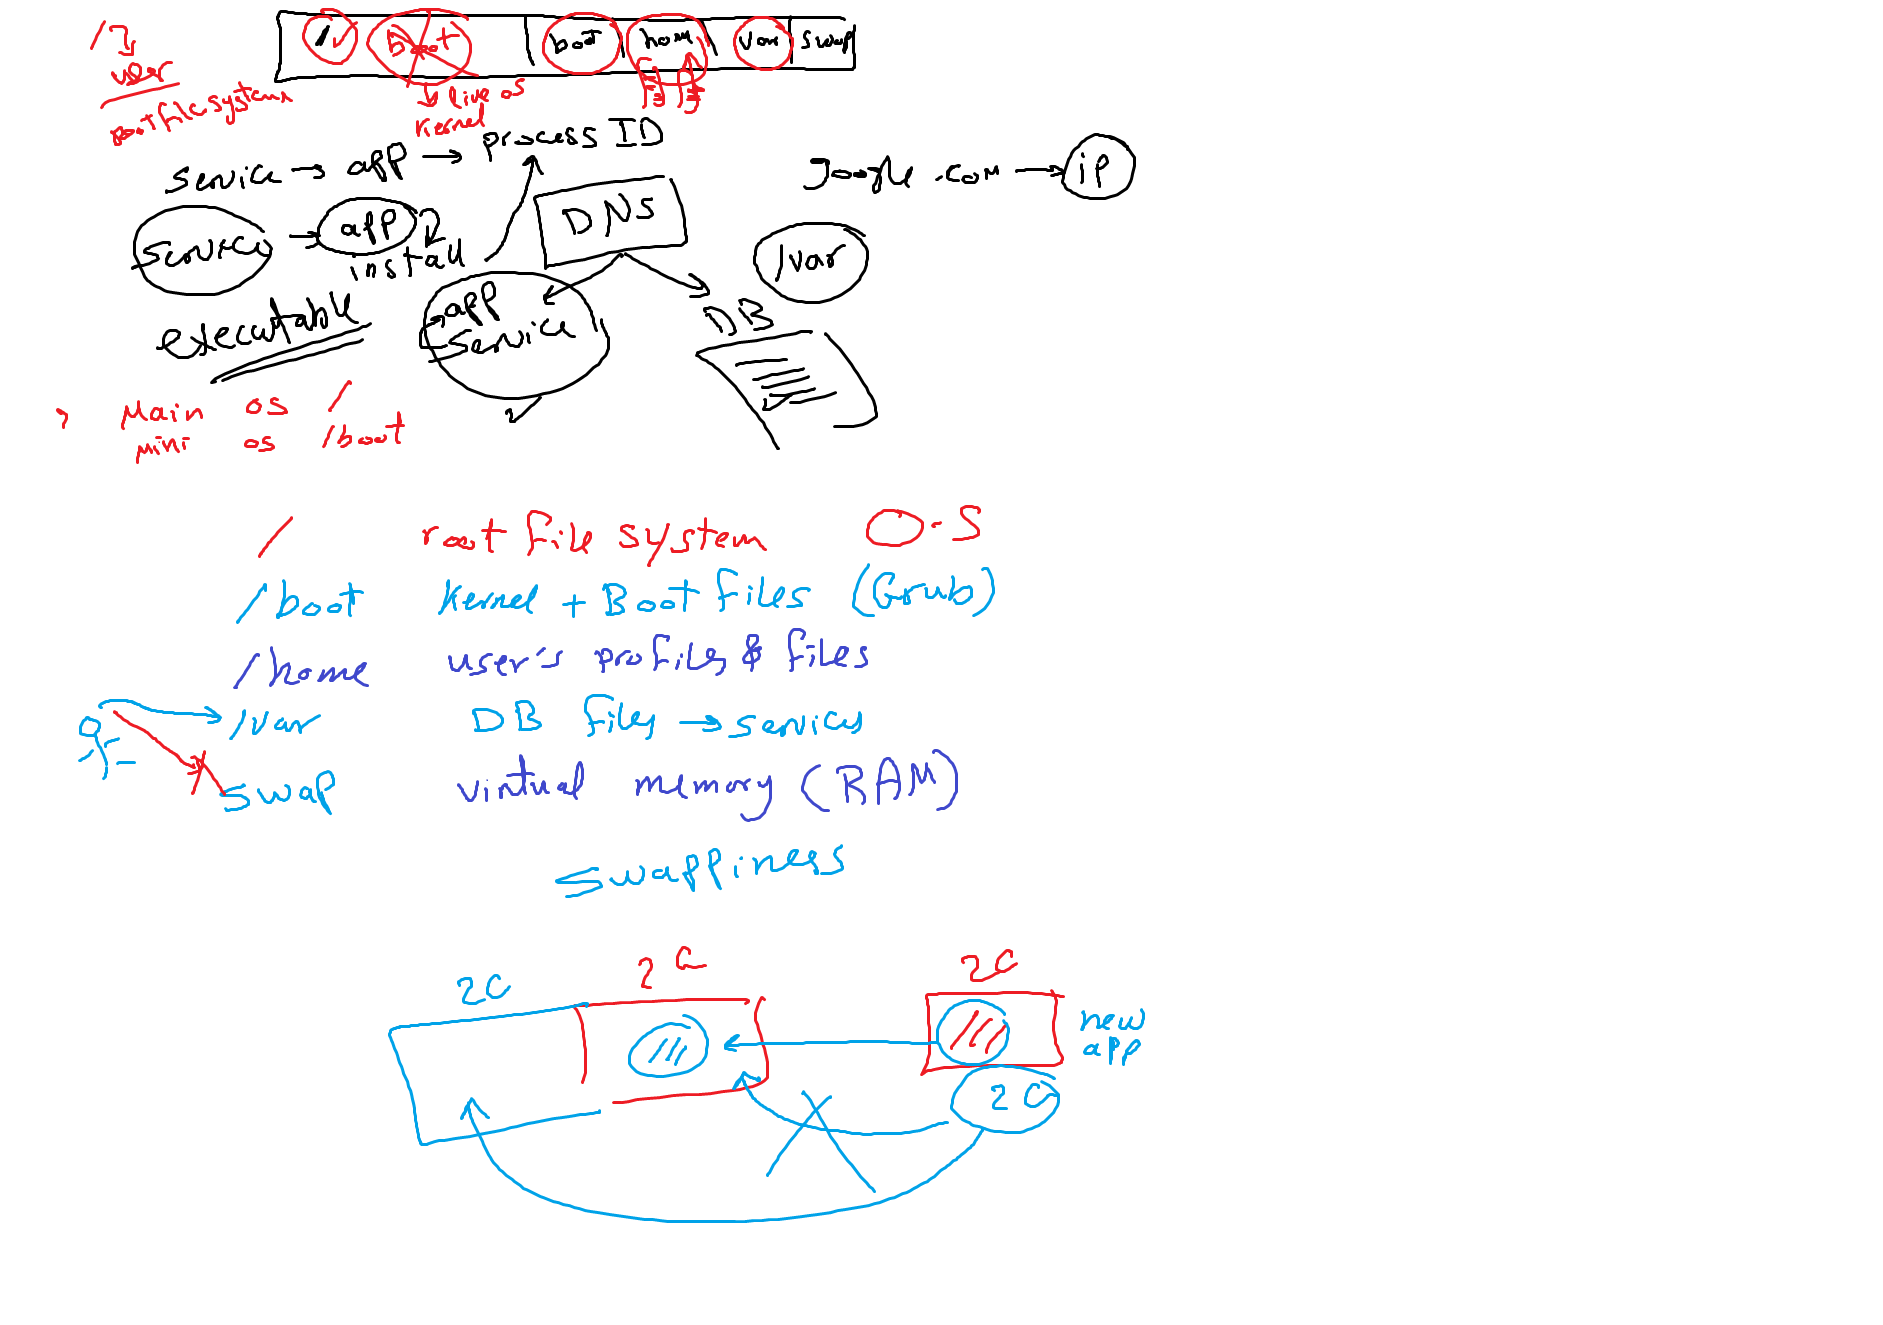 /
user
root file system
/ boot boot home var swap
live os
kernel
service → app → process ID
google.com → ip
service → app
install
DNS
/var
executable
app
service
DB
Main os /
mini os /boot
/ root file system O.S
/boot kernel + Boot files (Grub)
/home user's profiles & files
/var DB files → services
swap virtual memory (RAM)
swappiness
2G 2G 2G
new
app
2G